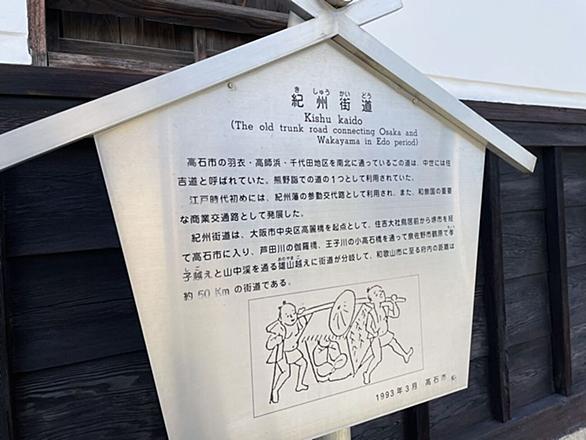 きしゅうかいどう
紀州街道
Kishu kaido
(The old trunk road connecting Osaka and
Wakayama in Edo period)
高石市の羽衣・高師浜・千代田地区を南北に通っているこの道は、中世には住
吉道と呼ばれていた。熊野詣での道の1つとして利用されていた。
江戸時代初めには、紀州藩の参勤交代路として利用され、また、和泉国の重要
な商業交通路として発展した。
紀州街道は、大阪市中央区高麗橋を起点として、住吉大社鳥居前から堺市を経
て高石市に入り、芦田川の伽羅橋、王子川の小高石橋を通って泉佐野市鶴原で
子越えと山中渓を通る雄山越えに街道が分岐して、和歌山市に至る府内の距離は
約50Kmの街道である。
1993年3月 高石市